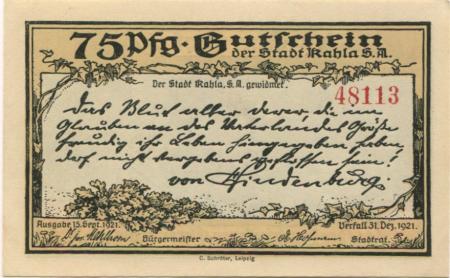 75 Pfg. Gutschein
der Stadt Kahla S.A.
Der Stadt Kahla, S.A. gewidmet.
48113
Das Blut aller derer, die im
Glauben an des Vaterlandes Größe
freudig ihr Leben hingegeben haben,
darf nicht vergebens geflossen sein!
von Hindenburg.
Ausgabe 15. Sept. 1921.
Verfall 31. Dez. 1921.
Bürgermeister
Stadtrat.
C. Schröter, Leipzig